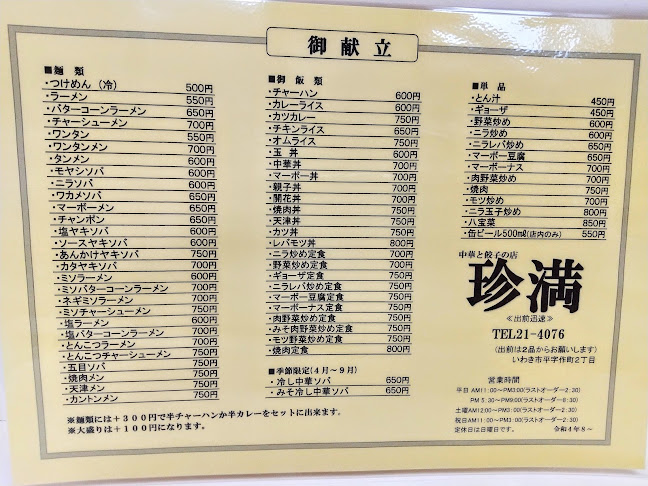 御献立
■麺 類
・つけめん（冷） 500円
・ラーメン 550円
・バターコーンラーメン 650円
・チャーシューメン 700円
・ワンタン 550円
・ワンタンメン 700円
・タンメン 600円
・モヤシソバ 650円
・ニラソバ 650円
・ワカメソバ 650円
・マーボーメン 650円
・チャンポン 650円
・塩ヤキソバ 600円
・ソースヤキソバ 600円
・あんかけヤキソバ 750円
・カタヤキソバ 700円
・ミソラーメン 600円
・ミソバターコーンラーメン 700円
・ネギミソラーメン 700円
・ミソチャーシューメン 750円
・塩ラーメン 600円
・塩バターコーンラーメン 700円
・とんこつラーメン 700円
・とんこつチャーシューメン 750円
・五目ソバ 750円
・焼肉メン 750円
・天津メン 750円
・カントンメン 750円
※麺類には＋３００円で半チャーハンか半カレーをセットに出来ます。
※大盛りは＋１００円になります。
■御 飯 類
・チャーハン 600円
・カレーライス 600円
・カツカレー 750円
・チキンライス 650円
・オムライス 750円
・玉 丼 600円
・中華丼 700円
・マーボー丼 700円
・親子丼 700円
・開花丼 700円
・焼肉丼 750円
・天津丼 750円
・カツ丼 750円
・レバモツ丼 800円
・ニラ炒め定食 700円
・野菜炒め定食 700円
・ギョーザ定食 750円
・ニラレバ炒め定食 750円
・マーボー豆腐定食 750円
・マーボーナス定食 750円
・肉野菜炒め定食 750円
・みそ肉野菜炒め定食 750円
・モツ野菜炒め定食 750円
・焼肉定食 800円
■季節限定（４月～９月）
・冷し中華ソバ 650円
・みそ冷し中華ソバ 650円
■単 品
・とん汁 450円
・ギョーザ 450円
・野菜炒め 600円
・ニラ炒め 600円
・ニラレバ炒め 650円
・マーボー豆腐 650円
・マーボーナス 700円
・肉野菜炒め 700円
・焼肉 750円
・モツ炒め 700円
・ニラ玉子炒め 800円
・八宝菜 850円
・缶ビール500㎖(店内のみ) 550円
中華と餃子の店
珍満
≪出前迅速≫
TEL21-4076
(出前は2品からお願いします)
いわき市平字作町２丁目
営業時間
平日 AM11:00～PM3:00(ラストオーダー2:30)
PM5:30～PM9:00(ラストオーダー8:30)
土曜AM12:00～PM3:00(ラストオーダー2:30)
祝日AM11:00～PM3:00(ラストオーダー2:30)
定休日は日曜日です。 令和４年８～